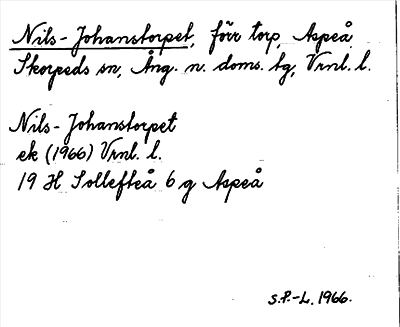 Nils-Johanstorpet, förr torp, Aspeå
Skorpeds sn, Ång. n. doms. tg, Vrnl. l.
Nils-Johanstorpet
ek (1966) Vrnl. l.
19 H Sollefteå 6 g Aspeå
S.P.-L. 1966.